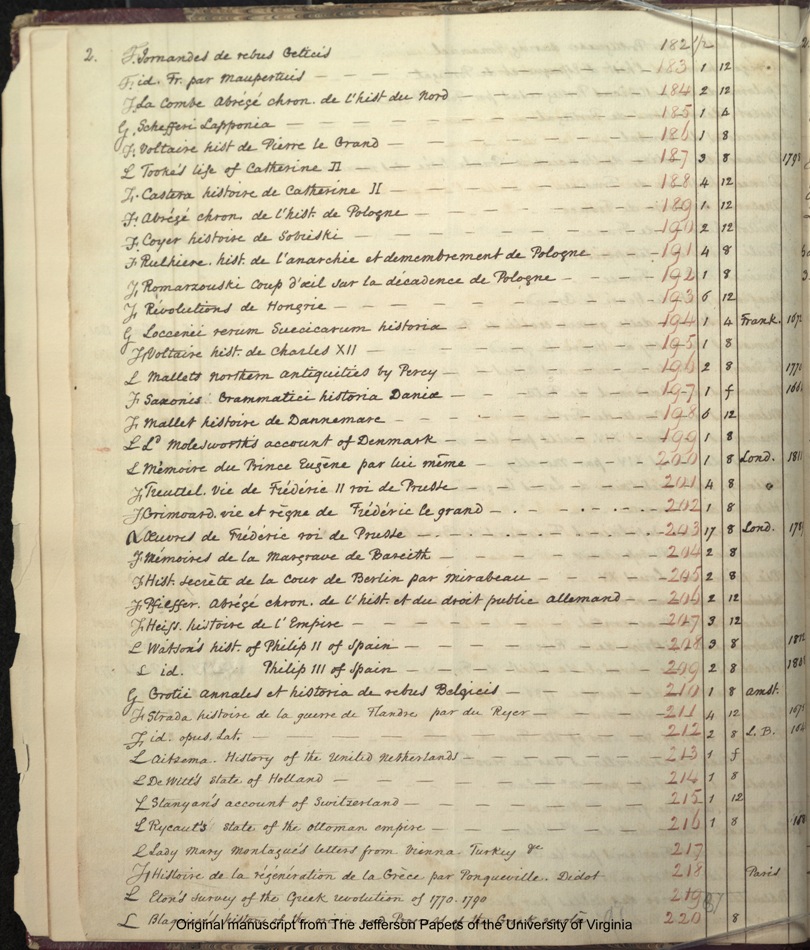 2. F. Jornandes de rebus Geticis 182 1/2
F. id. Fr. par Maupertuis — 183 1 12
F. La Combe Abrégé chron. de l'hist du Nord — 184 2 12
G. Schefferi Lapponia — 185 1 4
F. Voltaire hist de Pierre le Grand — 186 1 8
L Tooke's life of Catherine II — 187 3 8
F. Castera histoire de Catherine II — 188 4 12
F. Abrégé chron. de l'hist. de Pologne — 189 1 12
F. Coyer histoire de Sobieski — 190 2 12
F Rulhiere. hist. de l'anarchie et demembrement de Pologne — 191 4 8
F. Komarzouski coup d'œil sur la décadence de Pologne — 192 1 8
F. Révolutions de Hongrie — 193 6 12
G Loccenii rerum Suecicarum historia — 194 1 4 Frank.
F Voltaire hist. de Charles XII — 195 1 8
L Mallet's Northern antiquities by Percy — 196 2 8
F Saxonis Grammatici historia Daniæ — 197 1 f
F Mallet histoire de Dannemarc — 198 6 12
L Ld. Molesworth's account of Denmark — 199 1 8
L Mémoire du Prince Eugène par lui même — 200 1 8 Lond. 1811
F Treuttel. Vie de Frédéric II roi de Prusse — 201 4 8
F Grimoard. vie et règne de Frédéric le grand — 202 1 8
Œuvres de Frédéric roi de Prusse — 203 17 8 Lond.
F Mémoires de la Margrave de Bareith — 204 2 8
F Hist. secrète de la Cour de Berlin par Mirabeau — 205 2 8
F Pfeffer. Abrégé chron. de l'hist. et du droit public allemand — 206 2 12
F Heiss. histoire de l'Empire — 207 3 12
L Watson's hist. of Philip II of Spain — 208 3 8
L id. Philip III of Spain — 209 2 8
G Grotii annales et historia de rebus Belgicis — 210 1 8 Amst.
F Strada histoire de la guerre de Flandre par du Ryer — 211 4 12
F id. opus. Lat. — 212 2 8 L.B.
L Aitzema. History of the United Netherlands — 213 1 f
L De Witt's state of Holland — 214 1 8
L Stanyan's account of Switzerland — 215 1 12
L Rycaut's state of the ottoman empire — 216 1 8
L Lady Mary Montague's letters from Vienna Turkey &c 217
F Histoire de la régénération de la Grèce par Pouqueville. Didot 218 Paris
L Eton's survey of the Greek revolution of 1770-1790 219
L Blaquiere's history of the origin and Progress of the Greek revoln 220 8
Original manuscript from The Jefferson Papers of the University of Virginia